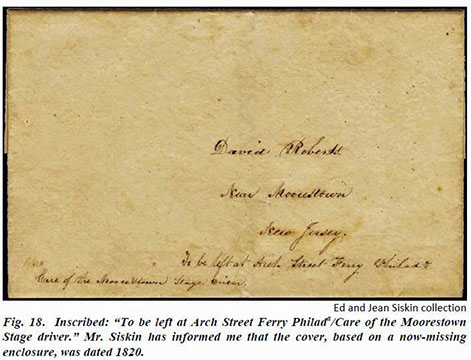 David Roberts.
Near Moorestown
New Jersey.
To be left at Arch Street Ferry Philadᵃ
Care of the Moorestown Stage driver.
Ed and Jean Siskin collection
Fig. 18. Inscribed: “To be left at Arch Street Ferry Philadᵃ/Care of the Moorestown
Stage driver.” Mr. Siskin has informed me that the cover, based on a now-missing
enclosure, was dated 1820.